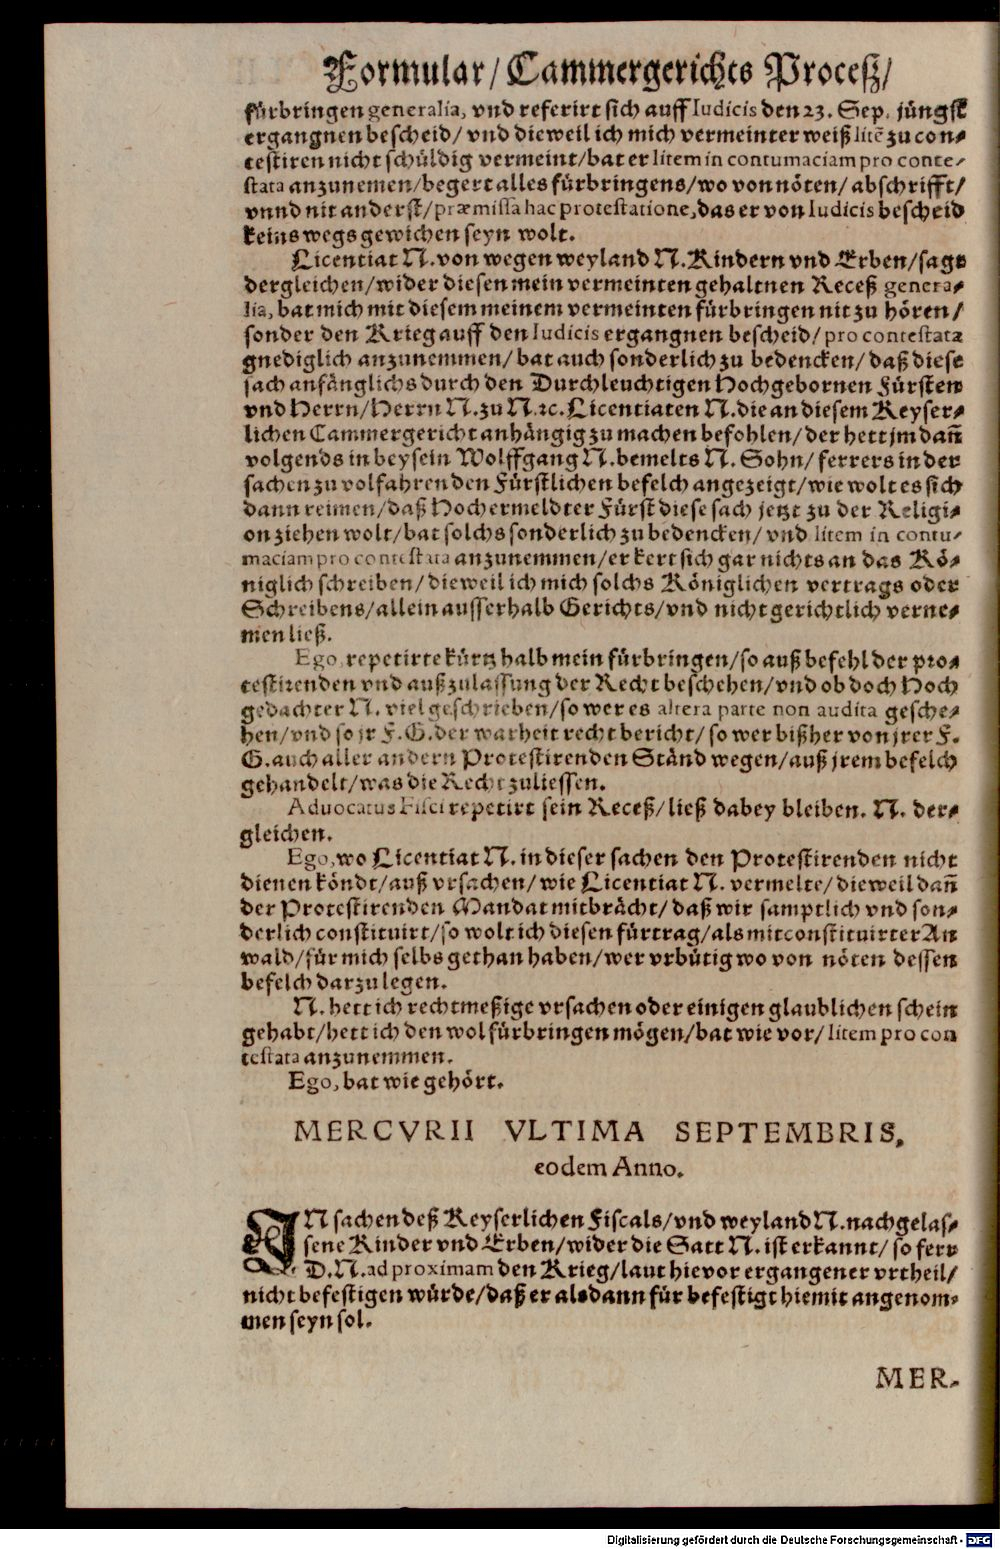 Formular/ Cammergerichts Proceſz/
fürbringen generalia, vnd referirt sich auff Iudicis den 23. Sep. jüngst
ergangnen bescheid/ vnd dieweil ich mich vermeinter weiß litē zu con-
testiren nicht schüldig vermeint/ bat er litem in contumaciam pro conte-
stata anzunemen/ begert alles fürbringens/ wo von nöten/ abschrifft/
vnnd nit anderst/ præmissa hac protestatione, das er von Iudicis bescheid
keins wegs gewichen seyn wolt.
Licentiat N. von wegen weyland N. Kindern vnd Erben/ sagt
dergleichen/ wider diesen mein vermeinten gehaltnen Receß genera-
lia, bat mich mit diesem meinem vermeinten fürbringen nit zu hören/
sonder den Krieg auff den Iudicis ergangnen bescheid/ pro contestata
gnediglich anzunemmen/ bat auch sonderlich zu bedencken/ daß diese
sach anfänglichs durch den Durchleuchtigen Hochgebornen Fürsten
vnd Herrn/ Herrn N. zu N. ꝛc. Licentiaten N. die an diesem Keyser-
lichen Cammergericht anhängig zu machen befohlen/ der hett jm dañ
volgends in beysein Wolffgang N. bemelts N. Sohn/ ferrers in der
sachen zu volfahren den Fürstlichen befelch angezeigt/ wie wolt es sich
dann reimen/ daß Hochermeldter Fürst diese sach jetzt zu der Religi-
on ziehen wolt/ bat solchs sonderlich zu bedencken/ vnd litem in contu-
maciam pro contestata anzunemmen/ er kert sich gar nichts an das Kö-
niglich schreiben/ dieweil ich mich solchs Königlichen vertrags oder
Schreibens/ allein ausserhalb Gerichts/ vnd nicht gerichtlich verne-
men ließ.
Ego, repetirte kürtz halb mein fürbringen/ so auß befehl der pro-
testirenden vnd auß zulassung der Recht beschehen/ vnd ob doch Hoch
gedachter N. viel geschrieben/ so wer es altera parte non audita gesche-
hen/ vnd so jr F. G. der warheit recht bericht/ so wer bißher von jrer F.
G. auch aller andern Protestirenden Ständ wegen/ auß jrem befelch
gehandelt/ was die Recht zuliessen.
Advocatus Fisci repetirt sein Receß/ ließ dabey bleiben. N. der-
gleichen.
Ego, wo Licentiat N. in dieser sachen den Protestirenden nicht
dienen köndt/ auß vrsachen/ wie Licentiat N. vermelte/ dieweil dañ
der Protestirenden Mandat mitbrächt/ daß wir samptlich vnd son-
derlich constituirt/ so wolt ich diesen fürtrag/ als mitconstituirter An
wald/ für mich selbs gethan haben/ wer vrbütig wo von nöten dessen
befelch darzulegen.
N. hett ich rechtmeßige vrsachen oder einigen glaublichen schein
gehabt/ hett ich den wol fürbringen mögen/ bat wie vor/ litem pro con
testata anzunemmen.
Ego, bat wie gehört.
MERCVRII VLTIMA SEPTEMBRIS,
eodem Anno.
IN sachen deß Keyserlichen Fiscals/ vnd weyland N. nachgelas-
sene Kinder vnd Erben/ wider die Satt N. ist erkannt/ so ferr
D. N. ad proximam den Krieg/ laut hievor ergangener vrtheil/
nicht befestigen würde/ daß er alsdann für befestigt hiemit angenom-
men seyn sol.
MER-
Digitalisierung gefördert durch die Deutsche Forschungsgemeinschaft - DFG